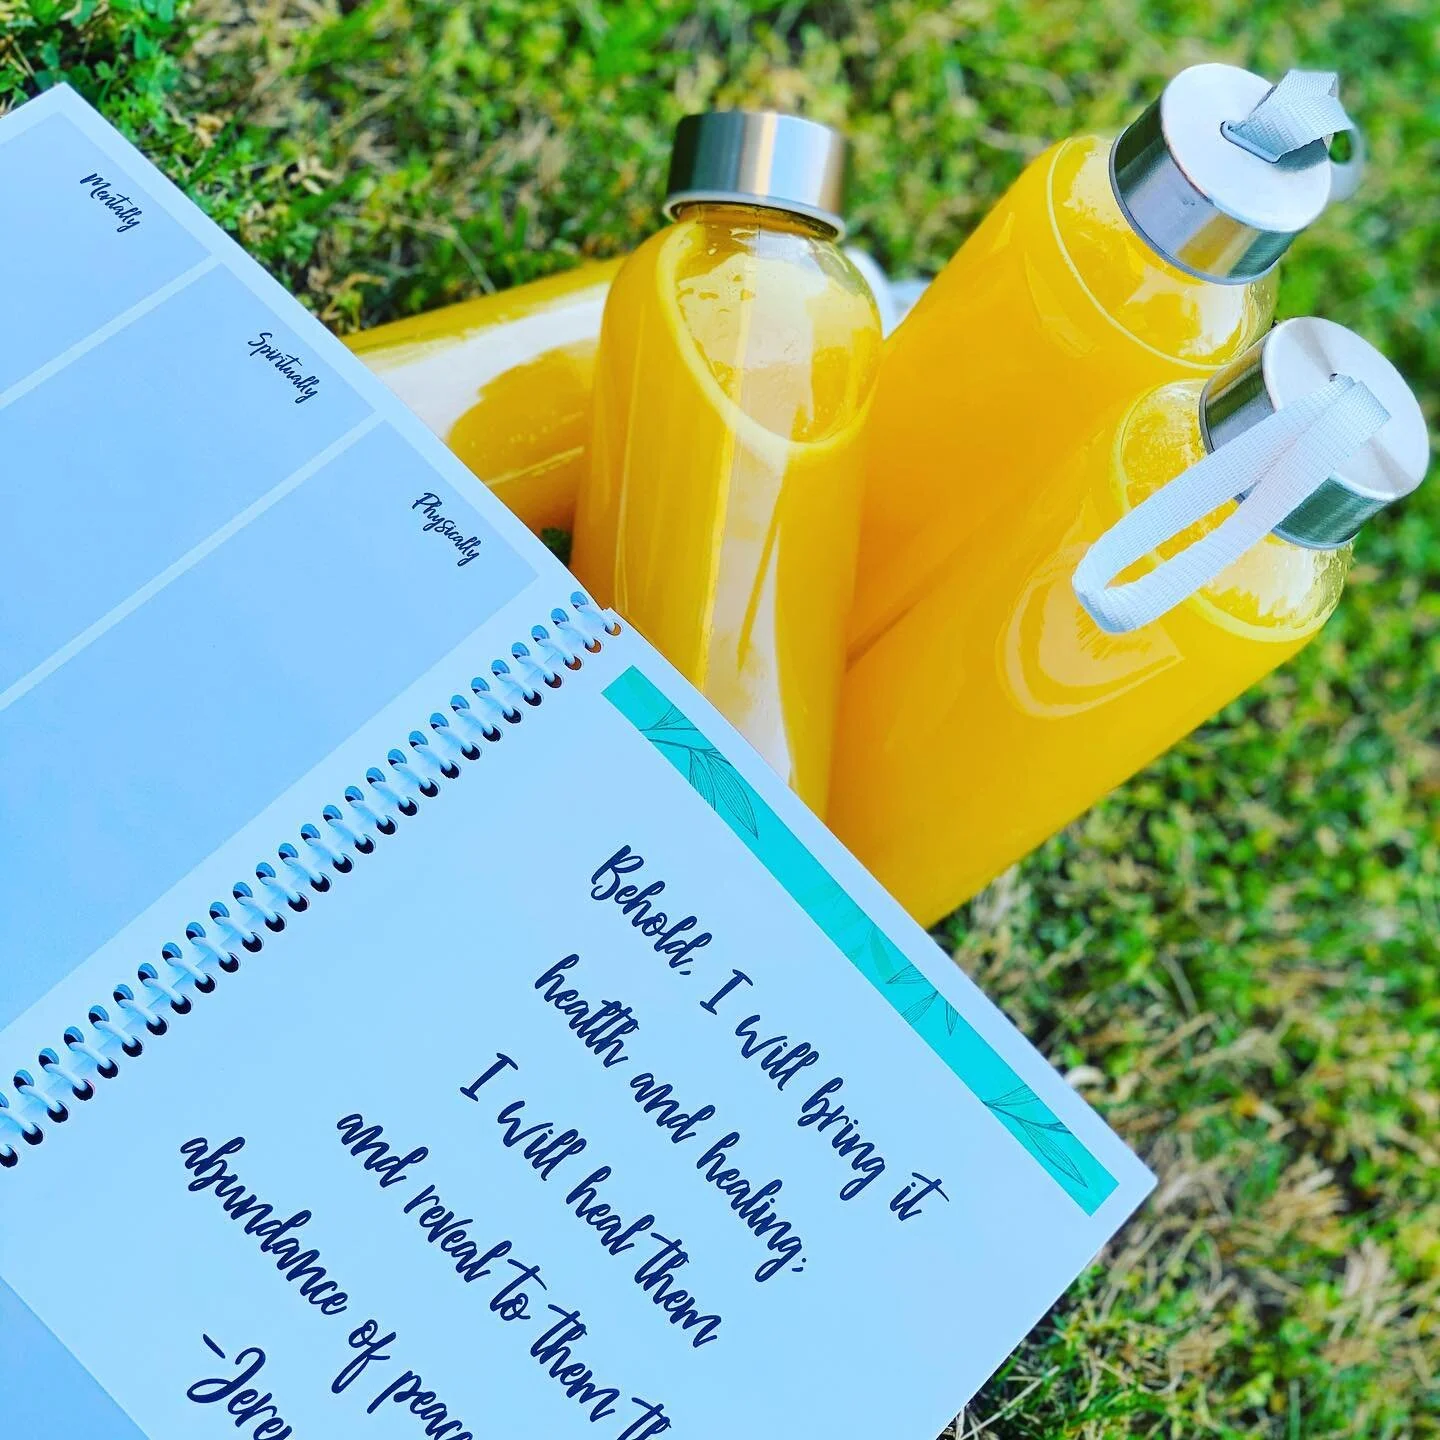 Mentally
Spiritually
Physically
Behold, I will bring it
health and healing;
I will heal them
and reveal to them
abundance of